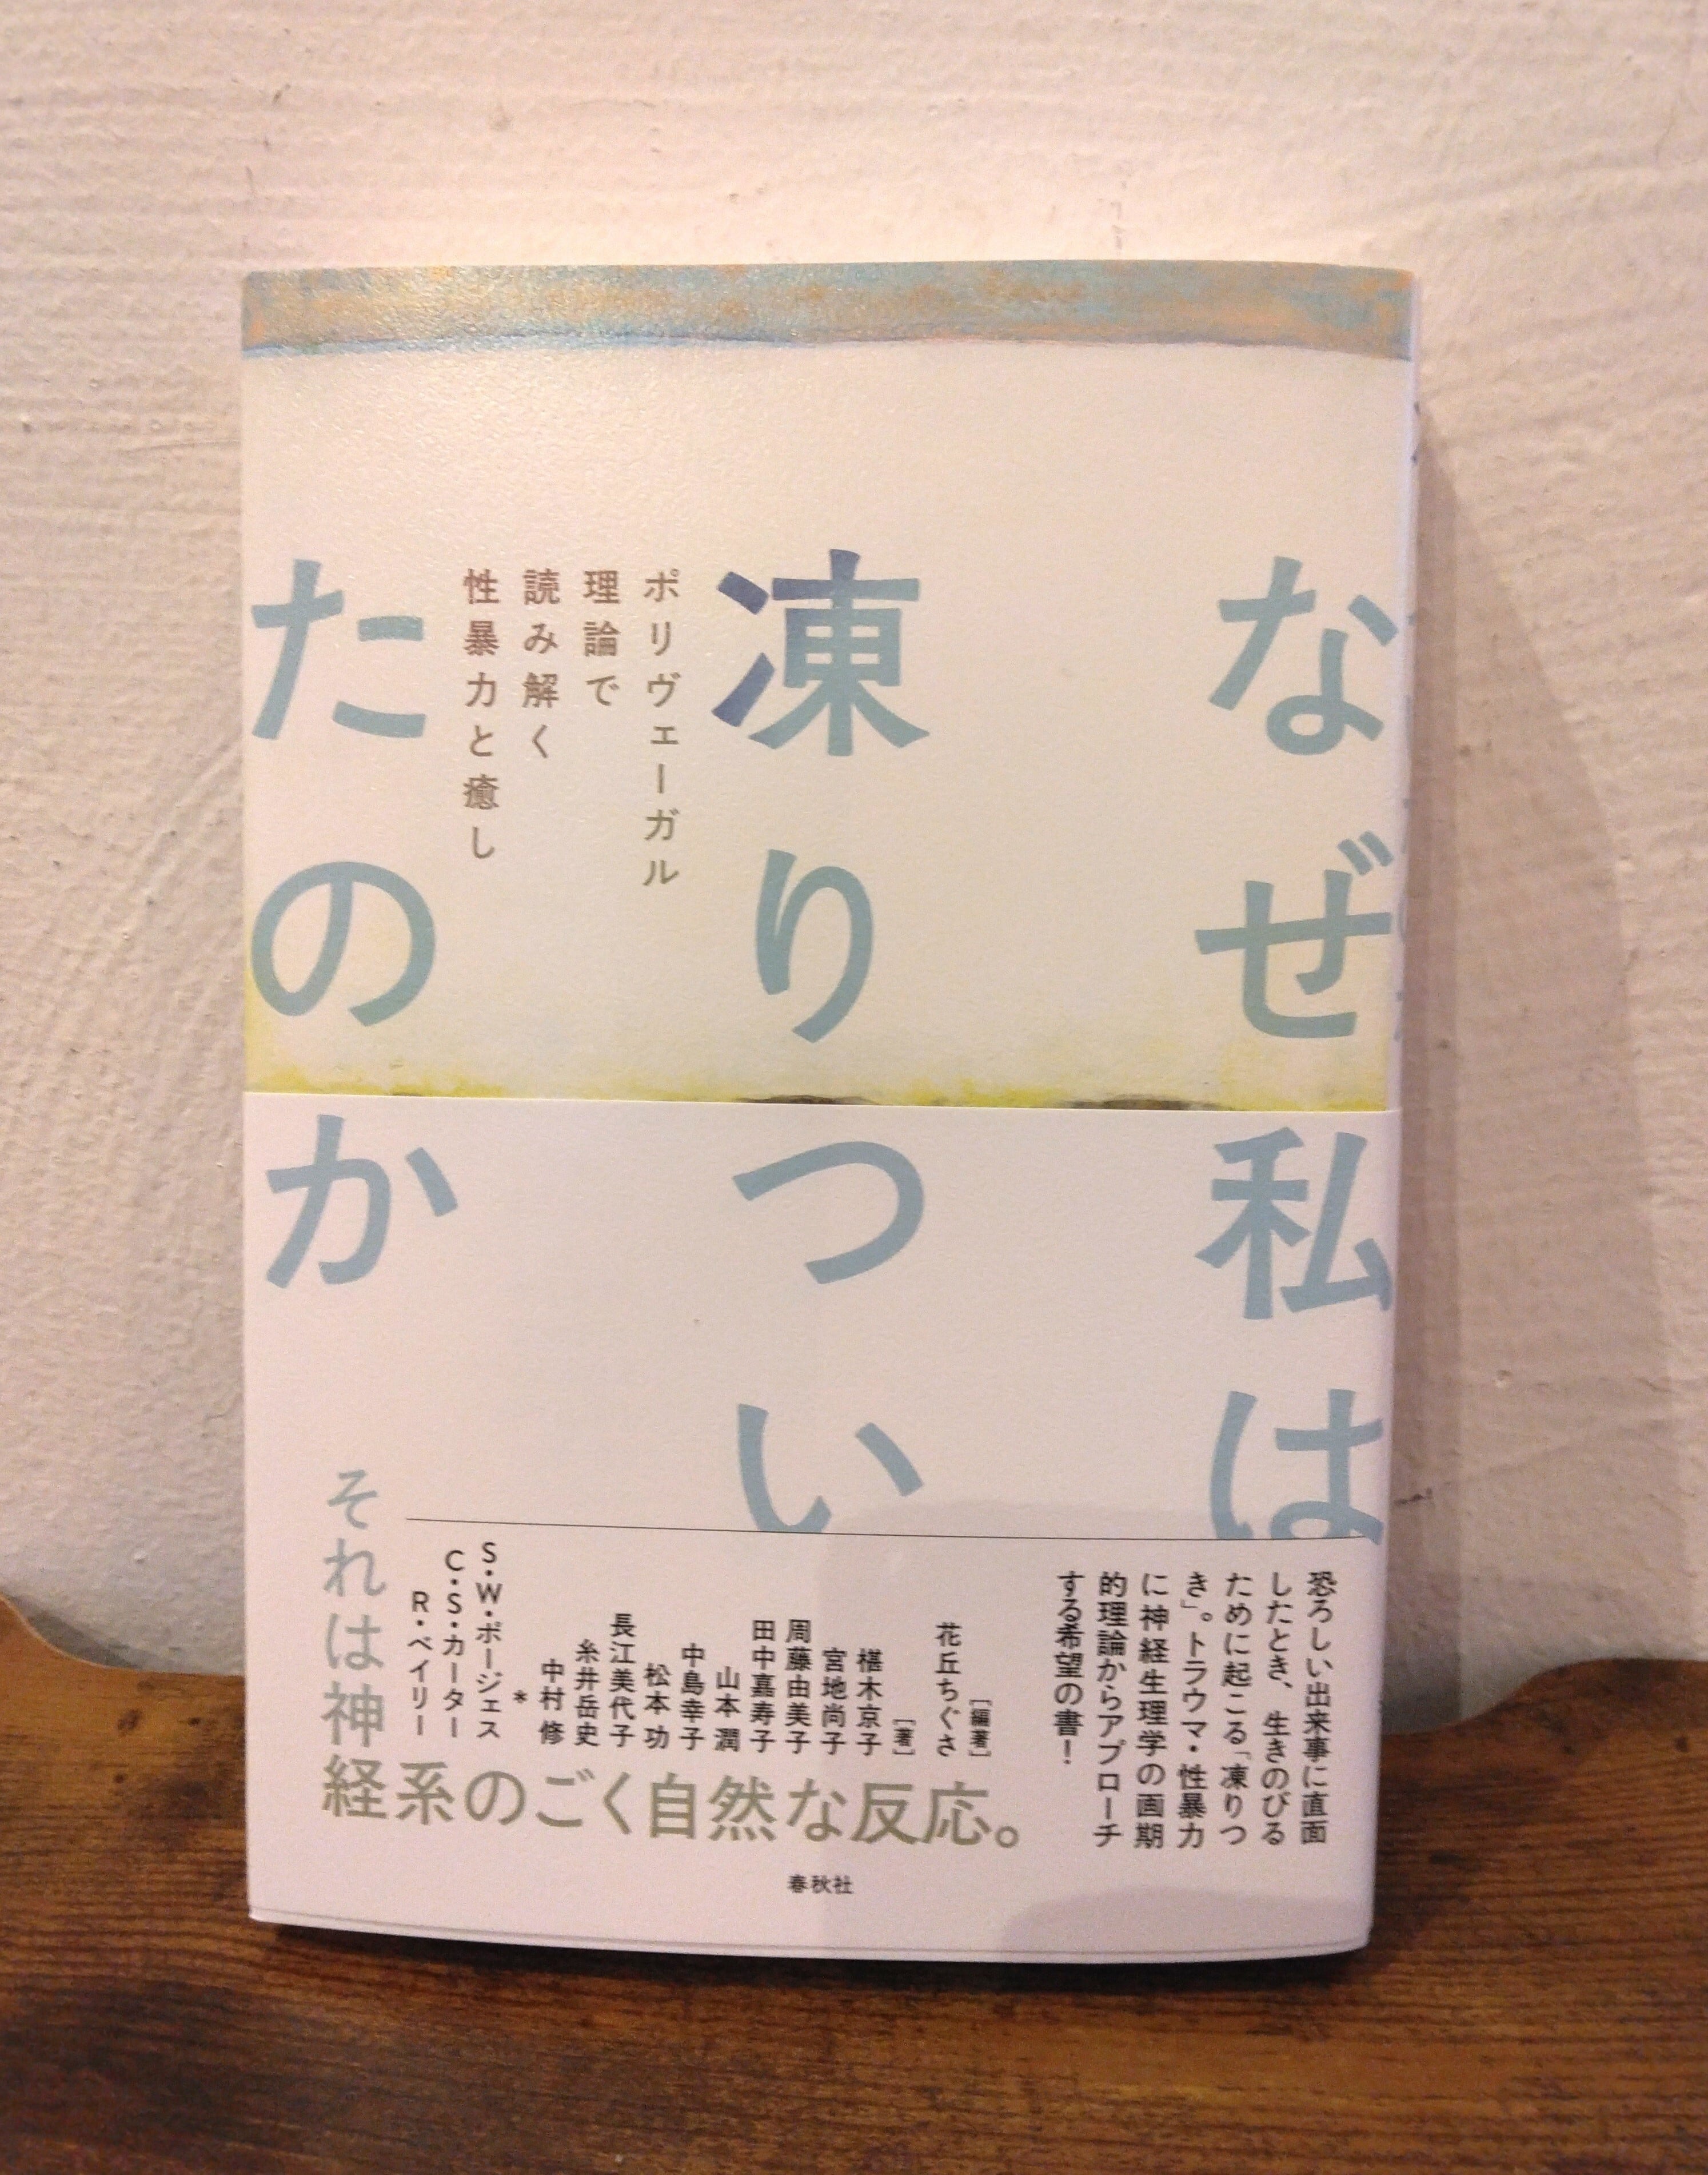 なぜ私は
凍りつい
たのか
ポリヴェーガル
理論で
読み解く
性暴力と癒し
恐ろしい出来事に直面
したとき、生きのびる
ために起こる「凍りつ
き」。トラウマ・性暴力
に神経生理学の画期
的理論からアプローチ
する希望の書！
［編著］
花丘ちぐさ
［著］
椹木京子
宮地尚子
周藤由美子
田中嘉寿子
山本 潤
中島幸子
松本 功
長江美代子
糸井岳史
中村 修
*
S・W・ポージェス
C・S・カーター
R・ベイリー
それは神
経系のごく自然な反応。
春秋社